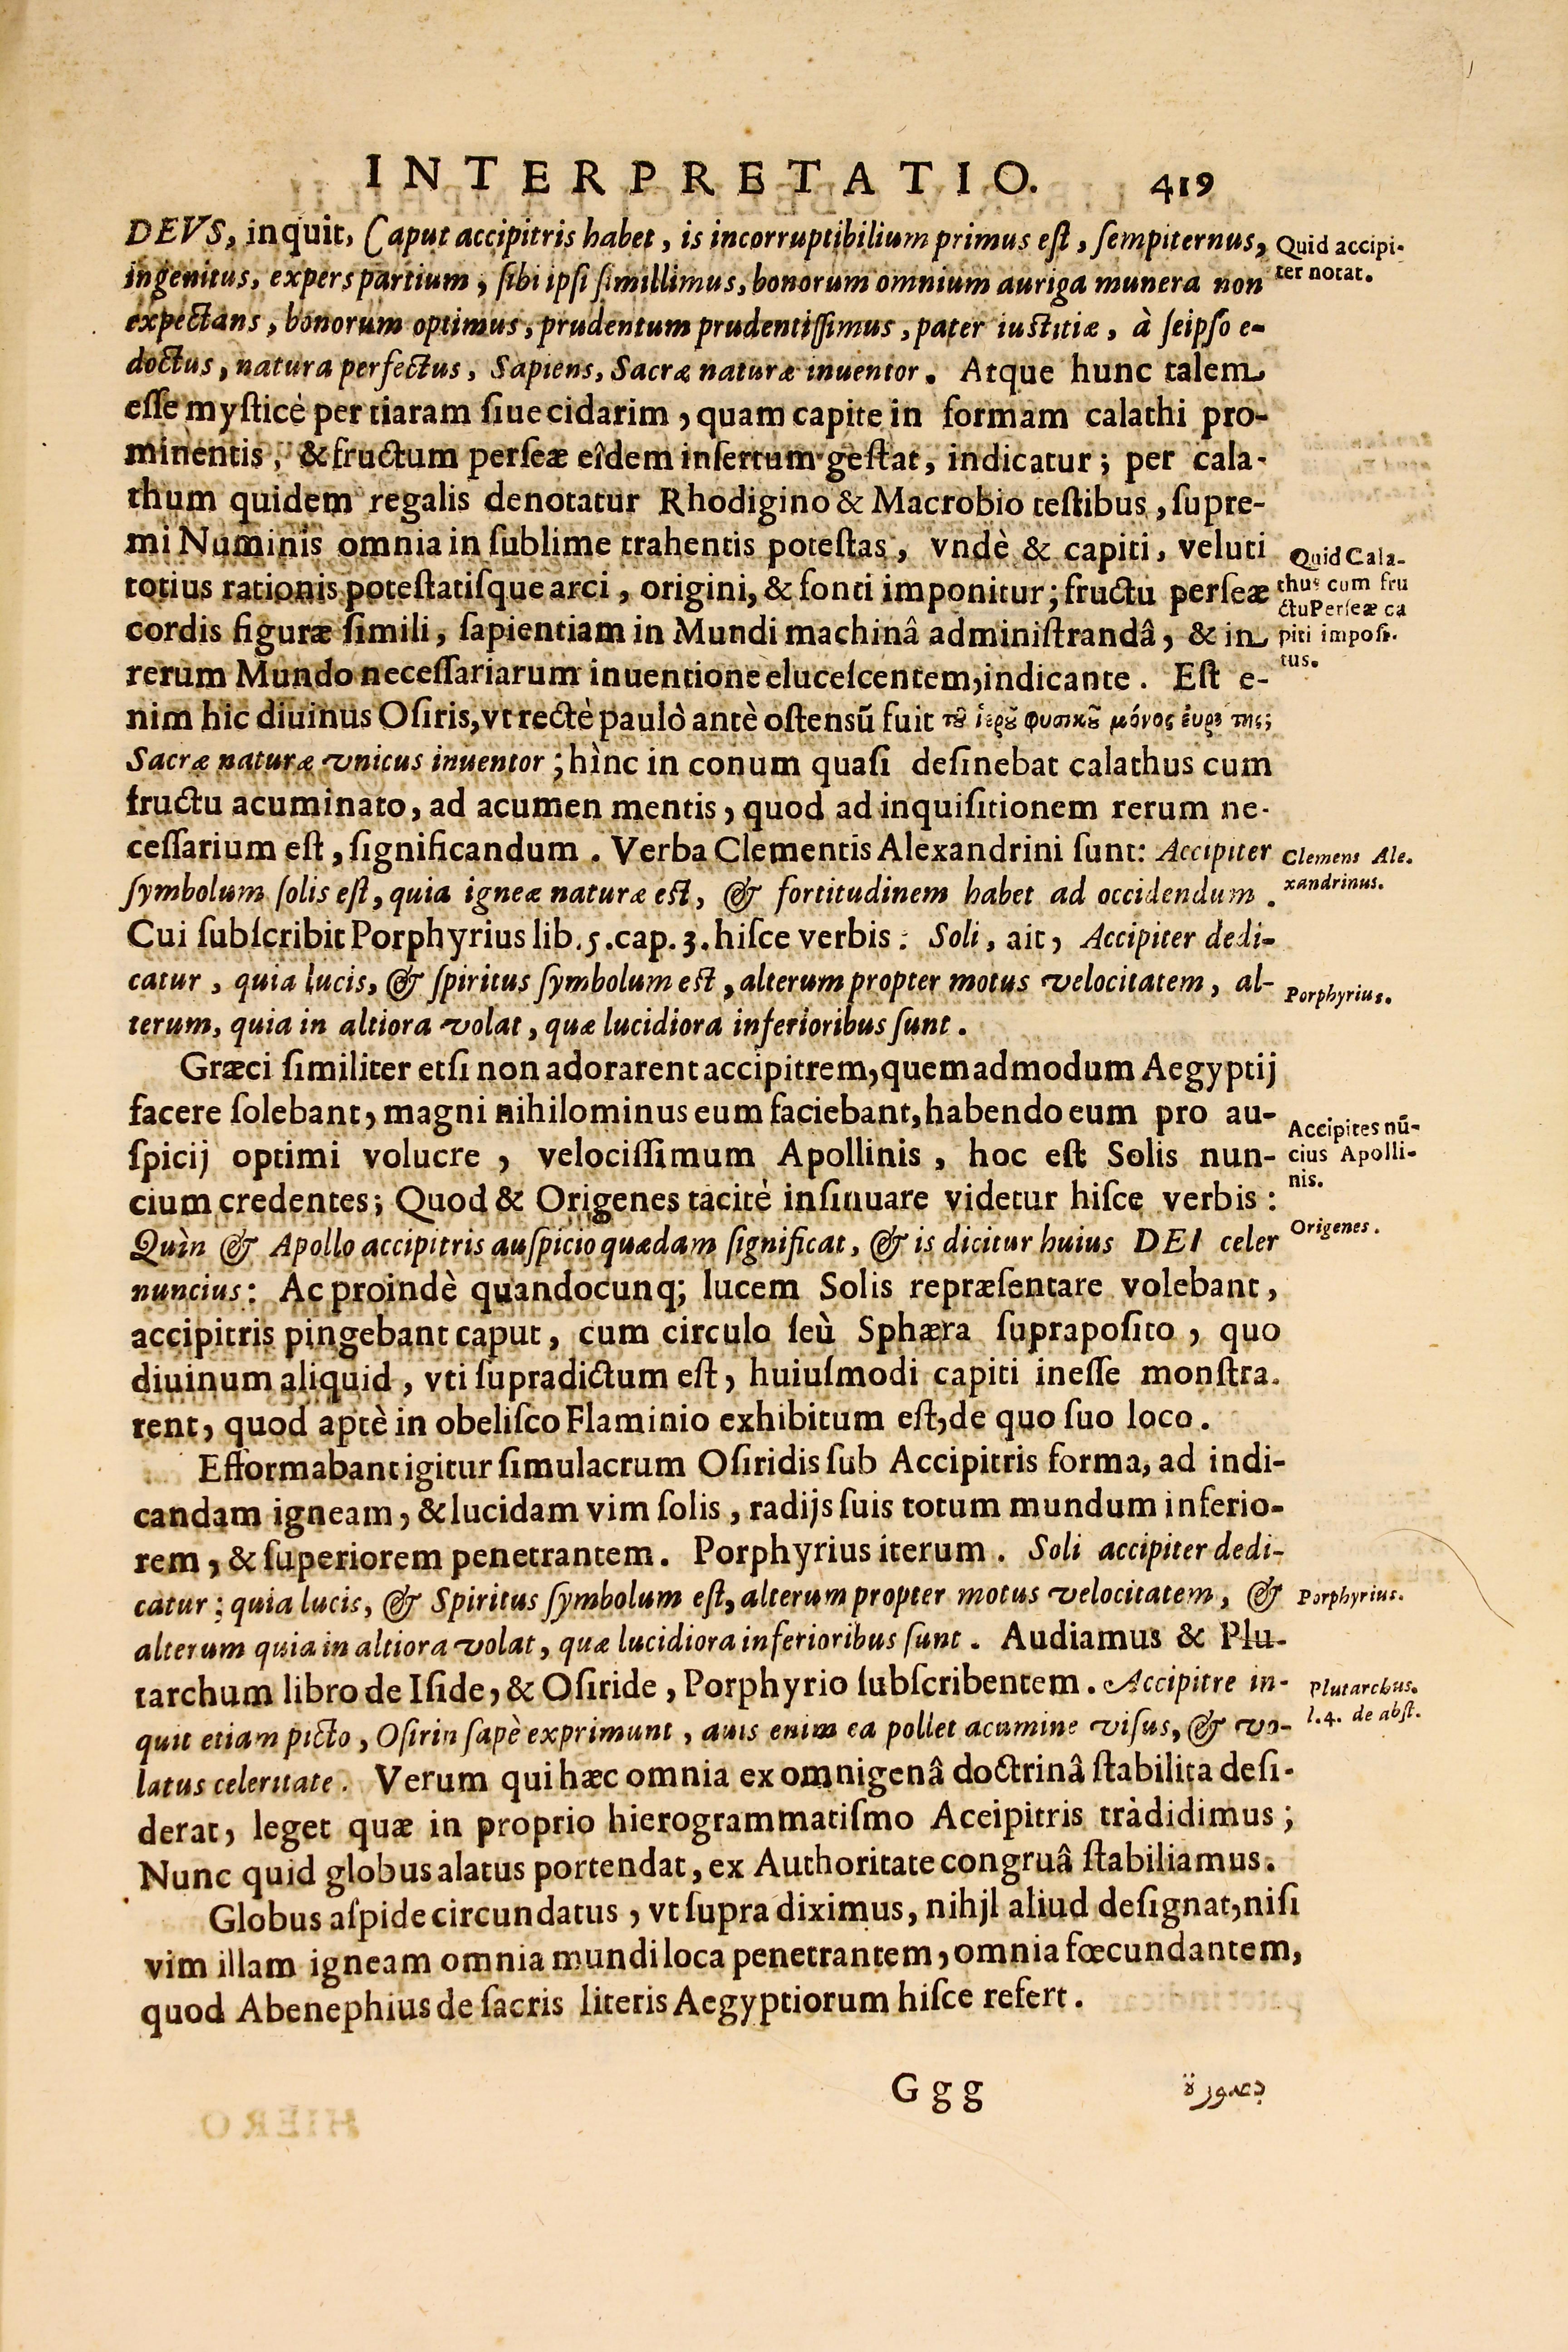 INTERPRETATIO. 419
DEVS, inquit, Caput accipitris habet, is incorruptibilium primus eſt, ſempiternus,
Quid accipi-
ter notat.
ingenitus, expers partium, ſibi ipſi ſimillimus, bonorum omnium auriga munera non
expectans, bonorum optimus, prudentum prudentiſſimus, pater iustitiæ, à ſeipſo e-
doctus, natura perfectus, Sapiens, Sacræ naturæ inuentor. Atque hunc talem
eſſe myſticè per tiaram ſiue cidarim, quam capite in formam calathi pro-
minentis, & fructum perſeæ eîdem inſertum geſtat, indicatur; per cala-
thum quidem regalis denotatur Rhodigino & Macrobio teſtibus, ſupre-
mi Numinis omnia in ſublime trahentis poteſtas, vndè & capiti, veluti
Quid Cala-
thus cum fru
ctu Perſeæ ca
piti impoſi-
tus.
totius rationis poteſtatiſque arci, origini, & fonti imponitur; fructu perſeæ
cordis figuræ ſimili, ſapientiam in Mundi machinâ adminiſtrandâ, & in
rerum Mundo neceſſariarum inuentione eluceſcentem, indicante. Eſt e-
nim hic diuinus Oſiris, vt rectè paulò antè oſtensũ fuit τȣ͂ ἱερȣ͂ φυσικȣ͂ μόνος ἑυρετης;
Sacræ naturæ vnicus inuentor; hìnc in conum quaſi deſinebat calathus cum
fructu acuminato, ad acumen mentis, quod ad inquiſitionem rerum ne-
ceſſarium eſt, ſignificandum. Verba Clementis Alexandrini ſunt: Accipiter
Clemens Ale.
xandrinus.
ſymbolum ſolis eſt, quia igneæ naturæ est, & fortitudinem habet ad occidendum.
Cui ſubſcribit Porphyrius lib. 5. cap. 3. hiſce verbis: Soli, ait, Accipiter dedi-
catur, quia lucis, & ſpiritus ſymbolum est, alterum propter motus velocitatem, al-
Porphyrius.
terum, quia in altiora volat, quæ lucidiora inferioribus ſunt.
Græci ſimiliter etſi non adorarent accipitrem, quemadmodum Aegyptij
facere ſolebant, magni nihilominus eum faciebant, habendo eum pro au-
Accipites nũ-
cius Apolli-
nis.
ſpicij optimi volucre, velociſſimum Apollinis, hoc eſt Solis nun-
cium credentes; Quod & Origenes tacitè inſinuare videtur hiſce verbis:
Origenes.
Quìn & Apollo accipitris auſpicio quædam ſignificat, & is dicitur huius DEI celer
nuncius: Ac proindè quandocunq; lucem Solis repræſentare volebant,
accipitris pingebant caput, cum circulo ſeù Sphæra ſuprapoſito, quo
diuinum aliquid, vti ſupradictum eſt, huiuſmodi capiti ineſſe monſtra.
rent, quod aptè in obeliſco Flaminio exhibitum eſt, de quo ſuo loco.
Efformabant igitur ſimulacrum Oſiridis ſub Accipitris forma, ad indi-
candam igneam, & lucidam vim ſolis, radijs ſuis totum mundum inferio-
rem, & ſuperiorem penetrantem. Porphyrius iterum. Soli accipiter dedi-
catur; quia lucis, & Spiritus ſymbolum eſt, alterum propter motus velocitatem, &
Porphyrius.
alterum quia in altiora volat, quæ lucidiora inferioribus ſunt. Audiamus & Plu-
tarchum libro de Iſide, & Oſiride, Porphyrio ſubſcribentem. Accipitre in-
Plutarchus.
l. 4. de abſt.
quit etiam picto, Oſirin ſæpè exprimunt, auis enim ea pollet acumine viſus, & vo-
latus celeritate. Verum qui hæc omnia ex omnigenâ doctrinâ ſtabilita deſi-
derat, leget quæ in proprio hierogrammatiſmo Aceipitris tràdidimus;
Nunc quid globus alatus portendat, ex Authoritate congruâ ſtabiliamus.
Globus aſpide circundatus, vt ſupra diximus, nihjl aliud deſignat, niſi
vim illam igneam omnia mundi loca penetrantem, omnia fœcundantem,
quod Abenephius de ſacris literis Aegyptiorum hiſce refert.
Ggg